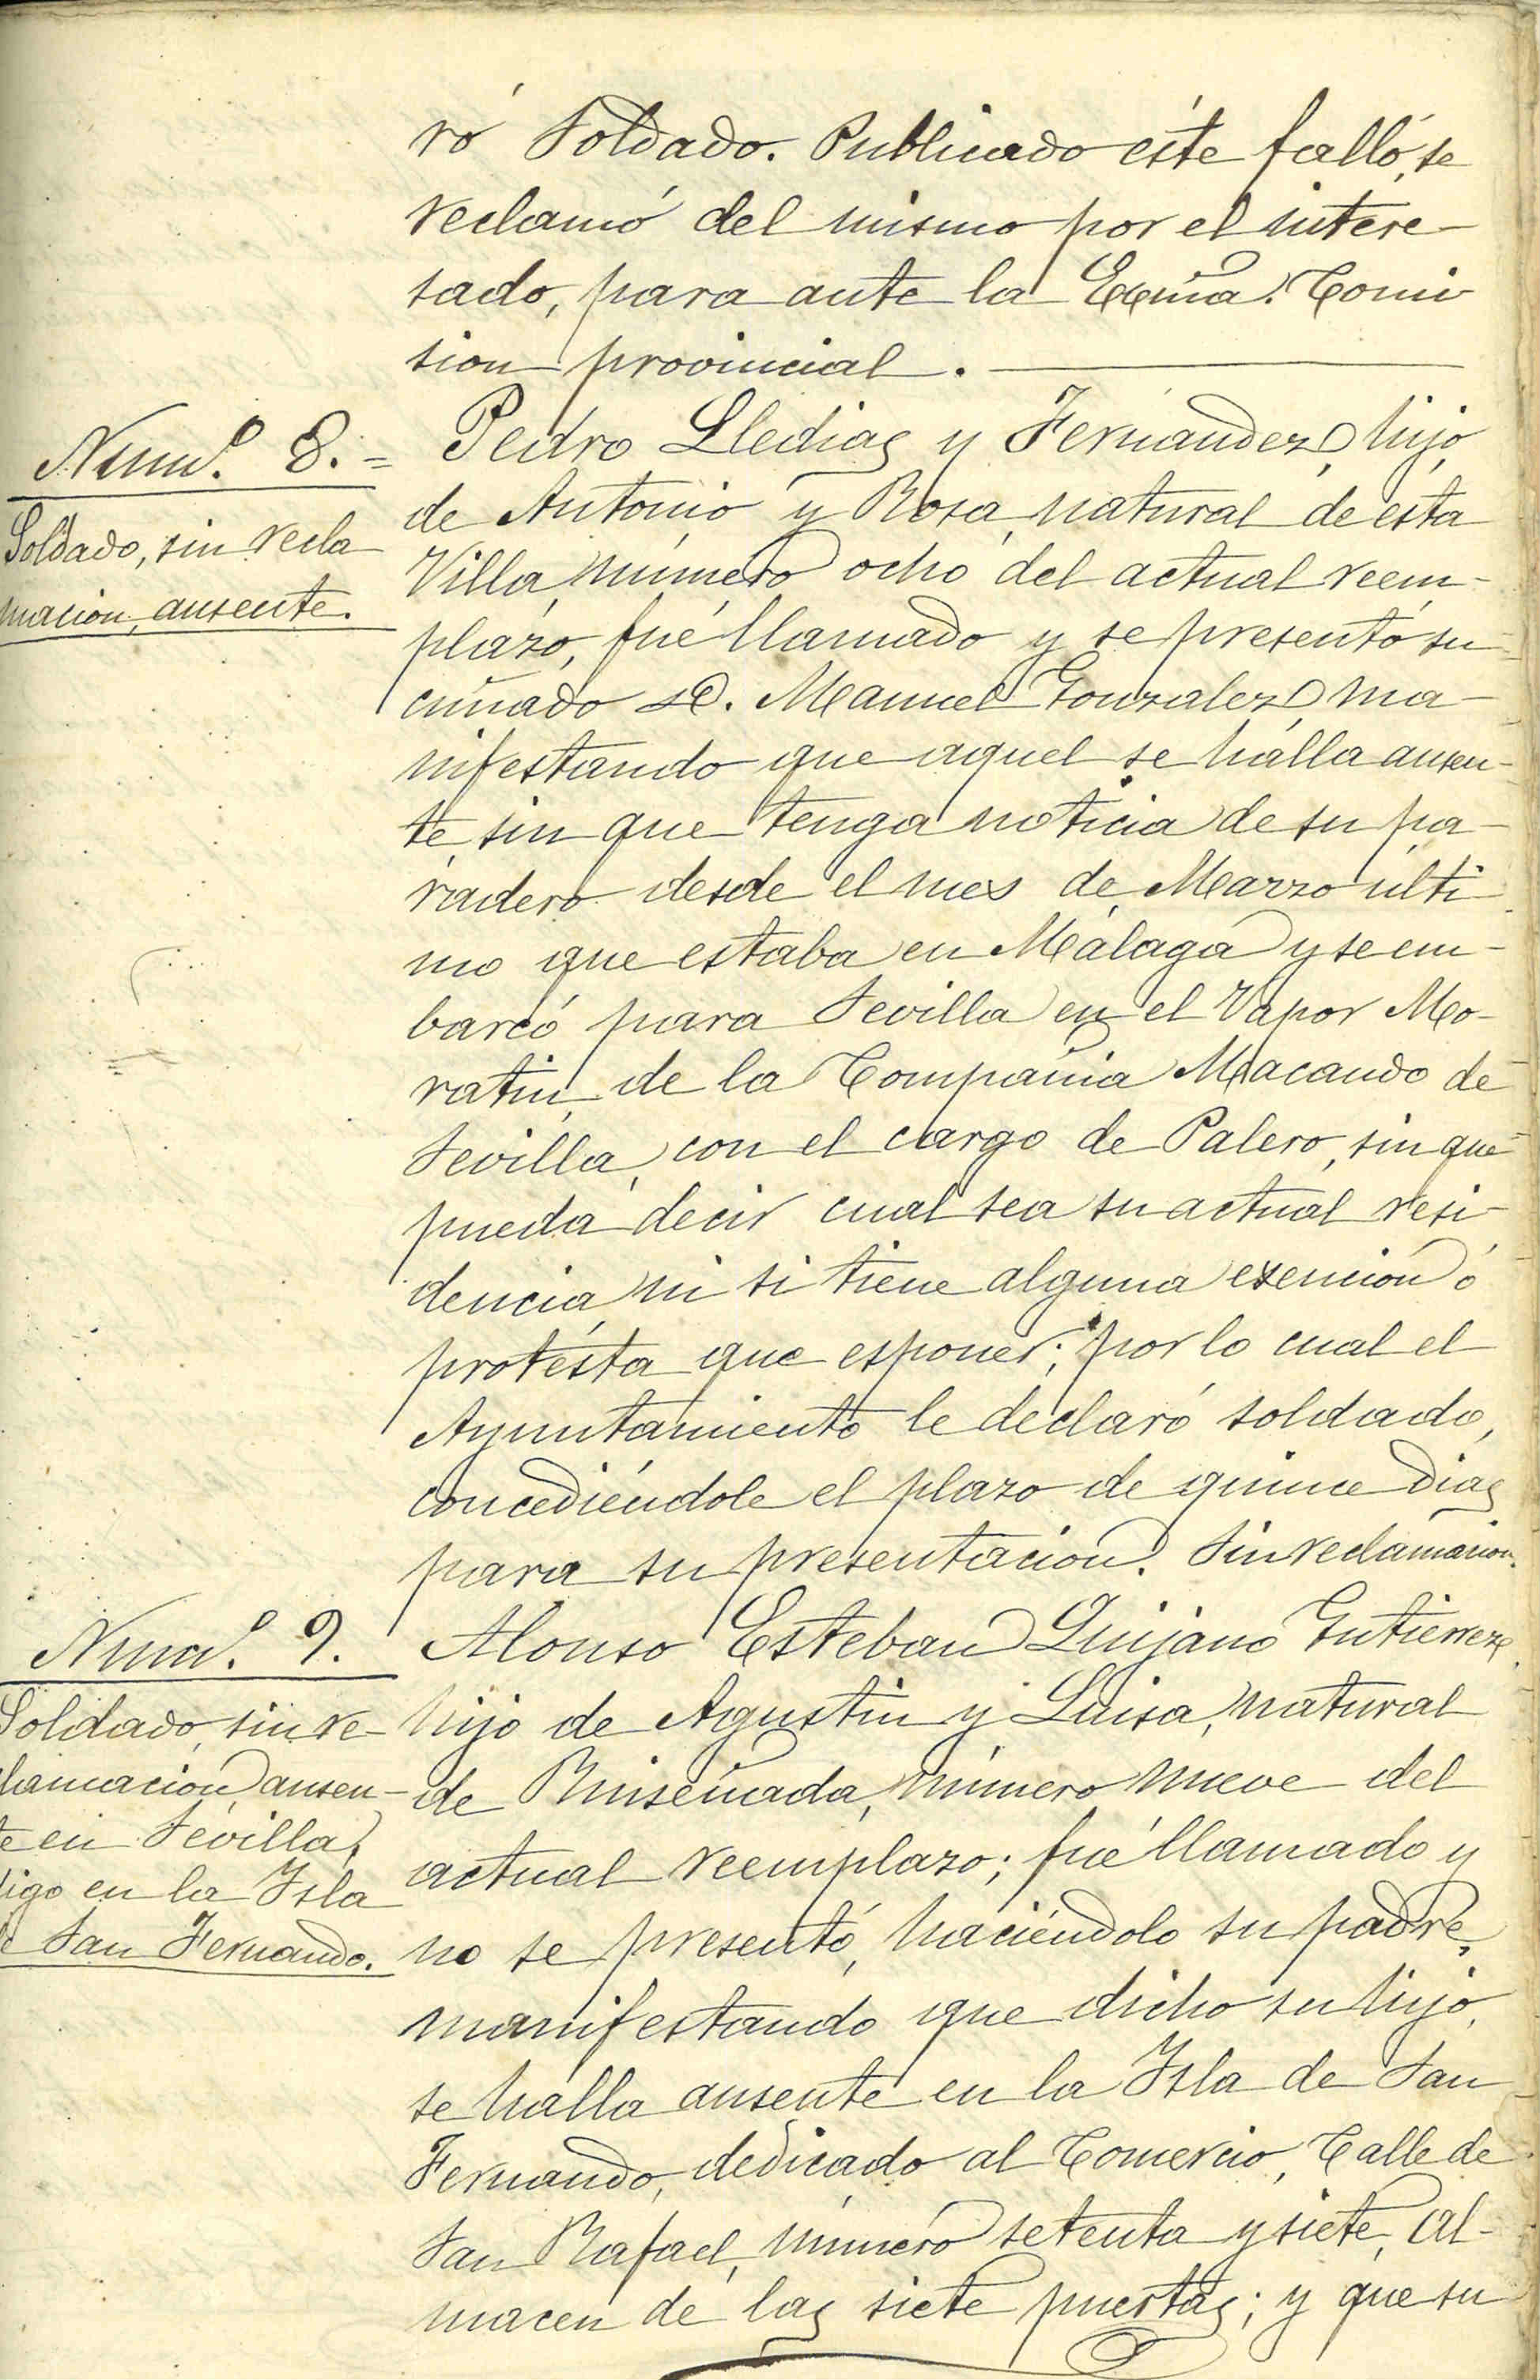 ró Soldado. Publicado éste falló, se
reclamó del mismo por el intere-
sado, para ante la Exma. Comi
sion provincial.
Num.º 8.=
Soldado, sin recla
macion, ausente.
Pedro Lledias y Fernandez, hijo
de Antonio y Rosa, natural de esta
Villa, número ocho del actual reem-
plazo, fué llamado y se presentó su
cuñado D. Manuel Gonzalez, ma-
nifestando que aquel se halla ausen-
te, sin que tenga noticia de su pa-
radero desde el mes de Marzo últi
mo que estaba en Málaga y se em-
barcó para Sevilla en el Vapor Mo-
ratin, de la Compañia Macando de
Sevilla, con el cargo de Palero, sin que
pueda decir cual sea su actual resi-
dencia, ni si tiene alguna exencion ó
protésta que esponer; por lo cual el
Ayuntamiento le declaró soldado,
concediéndole el plazo de quince dias
para su presentacion. Sin reclamacion.
Num.º 9.
Soldado, sin re-
clamacion, ausen-
te en Sevilla,
digo en la Isla
de San Fernando.
Alonso Esteban Quijano Gutierrez,
hijo de Agustin y Luisa, natural
de Ruiseñada, número nueve del
actual reemplazo; fué llamado y
no se presentó, haciéndolo su padre,
manifestando que dicho su hijo,
se halla ausente en la Isla de San
Fernando, dedicado al Comercio, Calle de
San Rafael, número setenta y siete, Al-
macen de las siete puertas; y que su